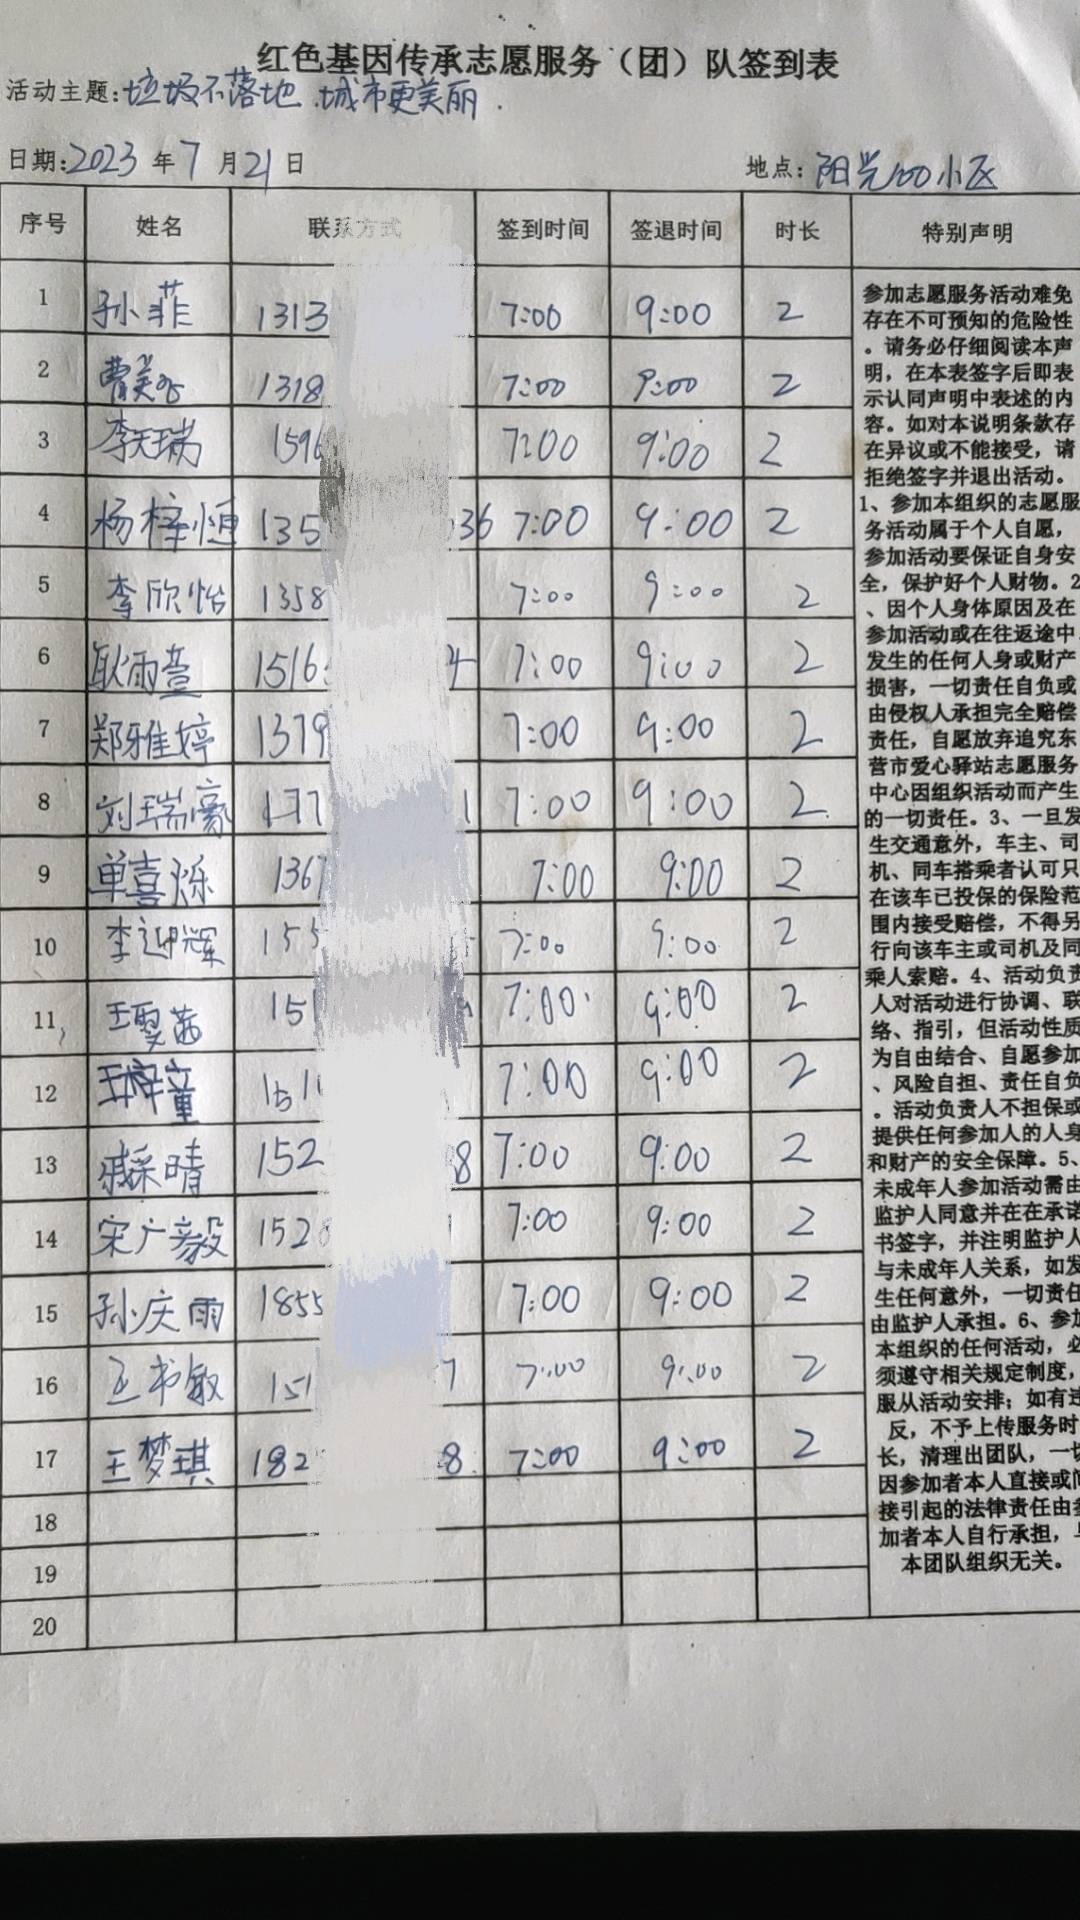 红色基因传承志愿服务（团）队签到表
活动主题:垃圾不落地 城市更美丽.
日期:2023年7月21日 地点:阳光100小区
序号 姓名 联系方式 签到时间 签退时间 时长 特别声明
1 孙菲 1313 7:00 9:00 2
2 曹美 1318 7:00 9:00 2
3 李天瑞 1596 7:00 9:00 2
4 杨梓恒 135 36 7:00 9:00 2
5 李欣怡 1358 7:00 9:00 2
6 耿雨萱 1516 4 7:00 9:00 2
7 郑雅婷 1379 7:00 9:00 2
8 刘瑞豪 177 1 7:00 9:00 2
9 单喜烁 1367 7:00 9:00 2
10 李迎辉 155 7:00 9:00 2
11 王雯茜 151 7:00 9:00 2
12 王梓童 151 7:00 9:00 2
13 戚采晴 152 8 7:00 9:00 2
14 宋广毅 1528 7:00 9:00 2
15 孙庆雨 1855 7:00 9:00 2
16 王书敏 151 7 7:00 9:00 2
17 王梦琪 182 8 7:00 9:00 2
18
19
20
参加志愿服务活动难免
存在不可预知的危险性
。请务必仔细阅读本声
明，在本表签字后即表
示认同声明中表述的内
容。如对本说明条款存
在异议或不能接受，请
拒绝签字并退出活动。
1、参加本组织的志愿服
务活动属于个人自愿，
参加活动要保证自身安
全，保护好个人财物。2
、因个人身体原因及在
参加活动或在往返途中
发生的任何人身或财产
损害，一切责任自负或
由侵权人承担完全赔偿
责任，自愿放弃追究东
营市爱心驿站志愿服务
中心因组织活动而产生
的一切责任。3、一旦发
生交通意外，车主、司
机、同车搭乘者认可只
在该车已投保的保险范
围内接受赔偿，不得另
行向该车主或司机及同
乘人索赔。4、活动负责
人对活动进行协调、联
络、指引，但活动性质
为自由结合、自愿参加
、风险自担、责任自负
。活动负责人不担保或
提供任何参加人的人身
和财产的安全保障。5、
未成年人参加活动需由
监护人同意并在在承诺
书签字，并注明监护人
与未成年人关系，如发
生任何意外，一切责任
由监护人承担。6、参加
本组织的任何活动，必
须遵守相关规定制度，
服从活动安排；如有违
反，不予上传服务时
长，清理出团队，一切
因参加者本人直接或间
接引起的法律责任由参
加者本人自行承担，与
本团队组织无关。